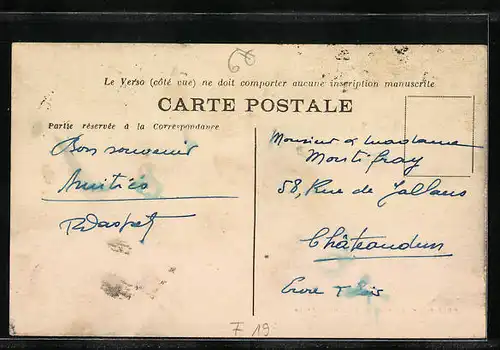 60
Le Verso (côté vue) ne doit comporter aucune inscription manuscrite
CARTE POSTALE
Partie réservée à la Correspondance
Bon souvenir
Amitiés
Monsieur & Madame
58, Rue de Jallans
Châteaudun
Eure & Loir
F 19